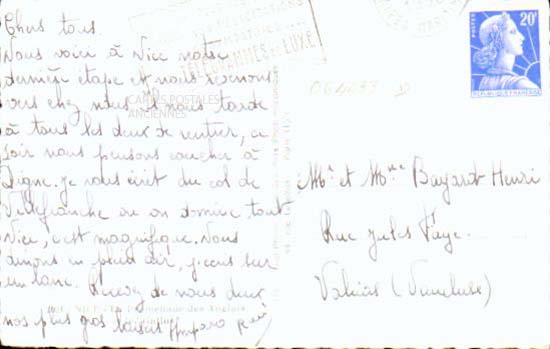 Chers tous.
Nous voici à Nice notre
dernière étape et nous revenons
vers chez nous. Il nous tarde
à tous les deux de rentrer, ce
soir nous pensons coucher à
Digne. je vous écrit du col de
Villefranche ou on domine tout
Nice, c'est magnifique. Nous
dinons en plein air, j'ecris sur
un banc. Recevez de nous deux
nos plus gros baisers Amparo
CARTES POSTALES
ANCIENNES
TELEGRAMMES de LUXE
POSTES
20F
REPUBLIQUE FRANCAISE
Mr et Mme Bayard Henri
Rue Jules Faye
Valréas (Vaucluse)
NICE
Promenade des Anglais